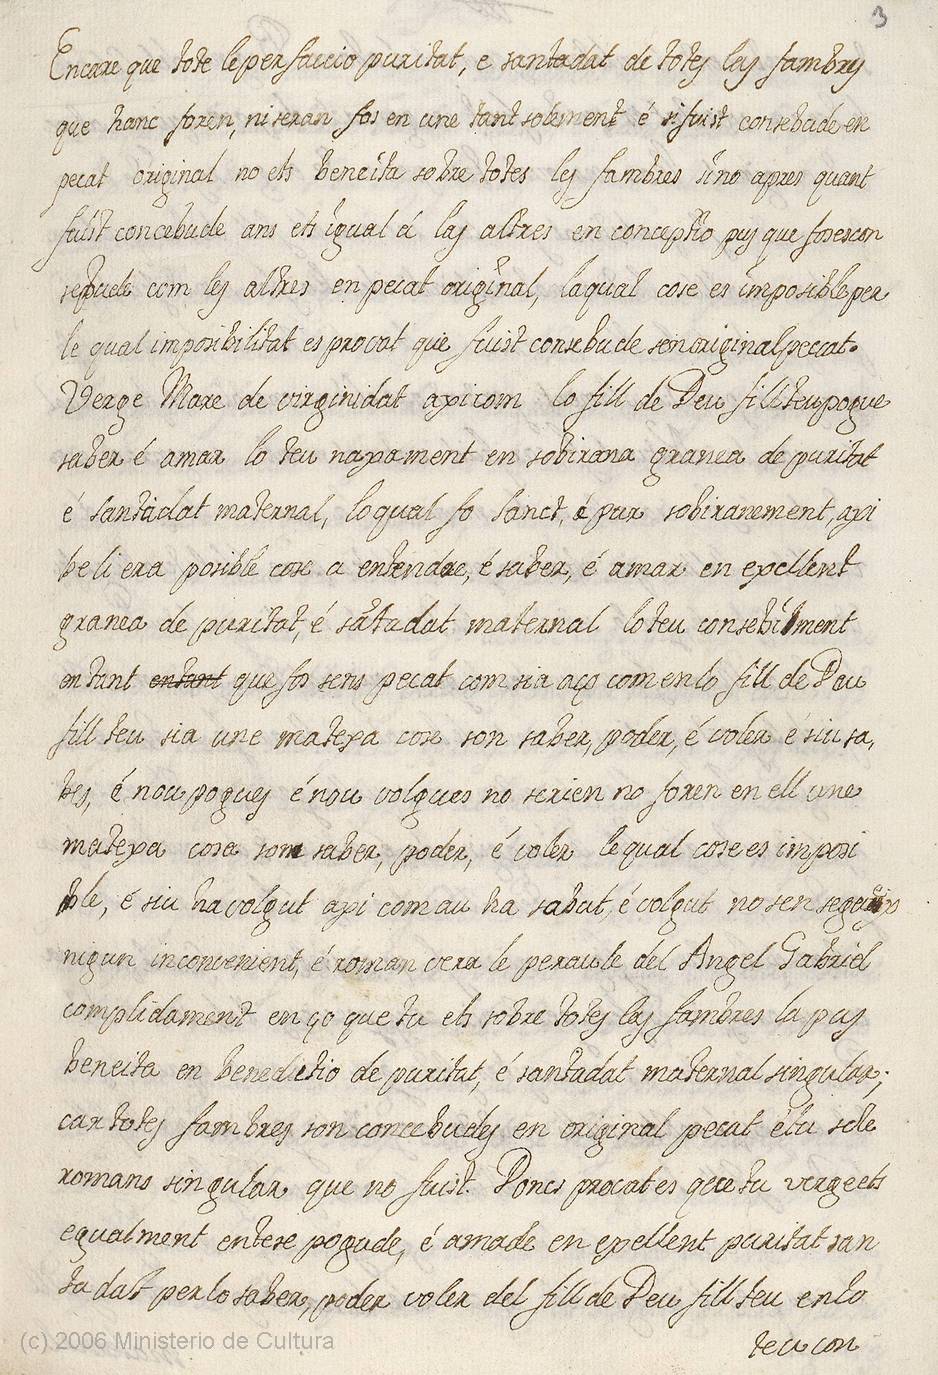 3
Encare que tote le perfaccio puritat, e santadat de totes les fambres
que hanc foren, ni seran fos en une tant solement é si fuist consebude en
pecat original no ets beneita sobre totes les fambres sino apres quant
fuist concebude ans ets igual á las altres en conceptio puy que foses con
sepude com les altres en pecat original, laqual cose es imposible per
le qual imposibilitat es provat que fuist consebude sen original peccat.
Verge Mare de virginidat axi com lo fill de Deu fill teu pogue
saber é amar lo teu naxament en sobirana granea de puritat
é santadat maternal, loqual fo sanct, é pur sobiranement, axi
be li era posible cose a entendre, é saber, é amar en excllent
granea de puritat, é sātadat maternal lo teu consebiment
en tant entant que fos sens pecat com sia aço com en lo fill de Deu
fill teu sia une matexa cose son saber, poder, é voler é si u sa,
bes, é nou pogues é nou volgues no serien no foren en ell une
matexa cosa som saber, poder, é voler le qual cose es imposi
ble, é siu ha volgut axi com au ha sabut, é volgut no sen
nigun inconvenient, é roman vera le peraule del Angel Gabriel
complidament en ço que tu ets sobre totes las fambres la pus
beneita en benedictio de puritat, é santadat maternal singular;
car totes fambres son concebudes en original pecat é tu sole
romans singular que no fuist. Doncs procat es que tu verge ets
egualment entese pogude, é amade en exellent puritat san
tadat per lo saber, poder voler del fill de Deu fill teu en lo
teu con
(c) 2006 Ministerio de Cultura